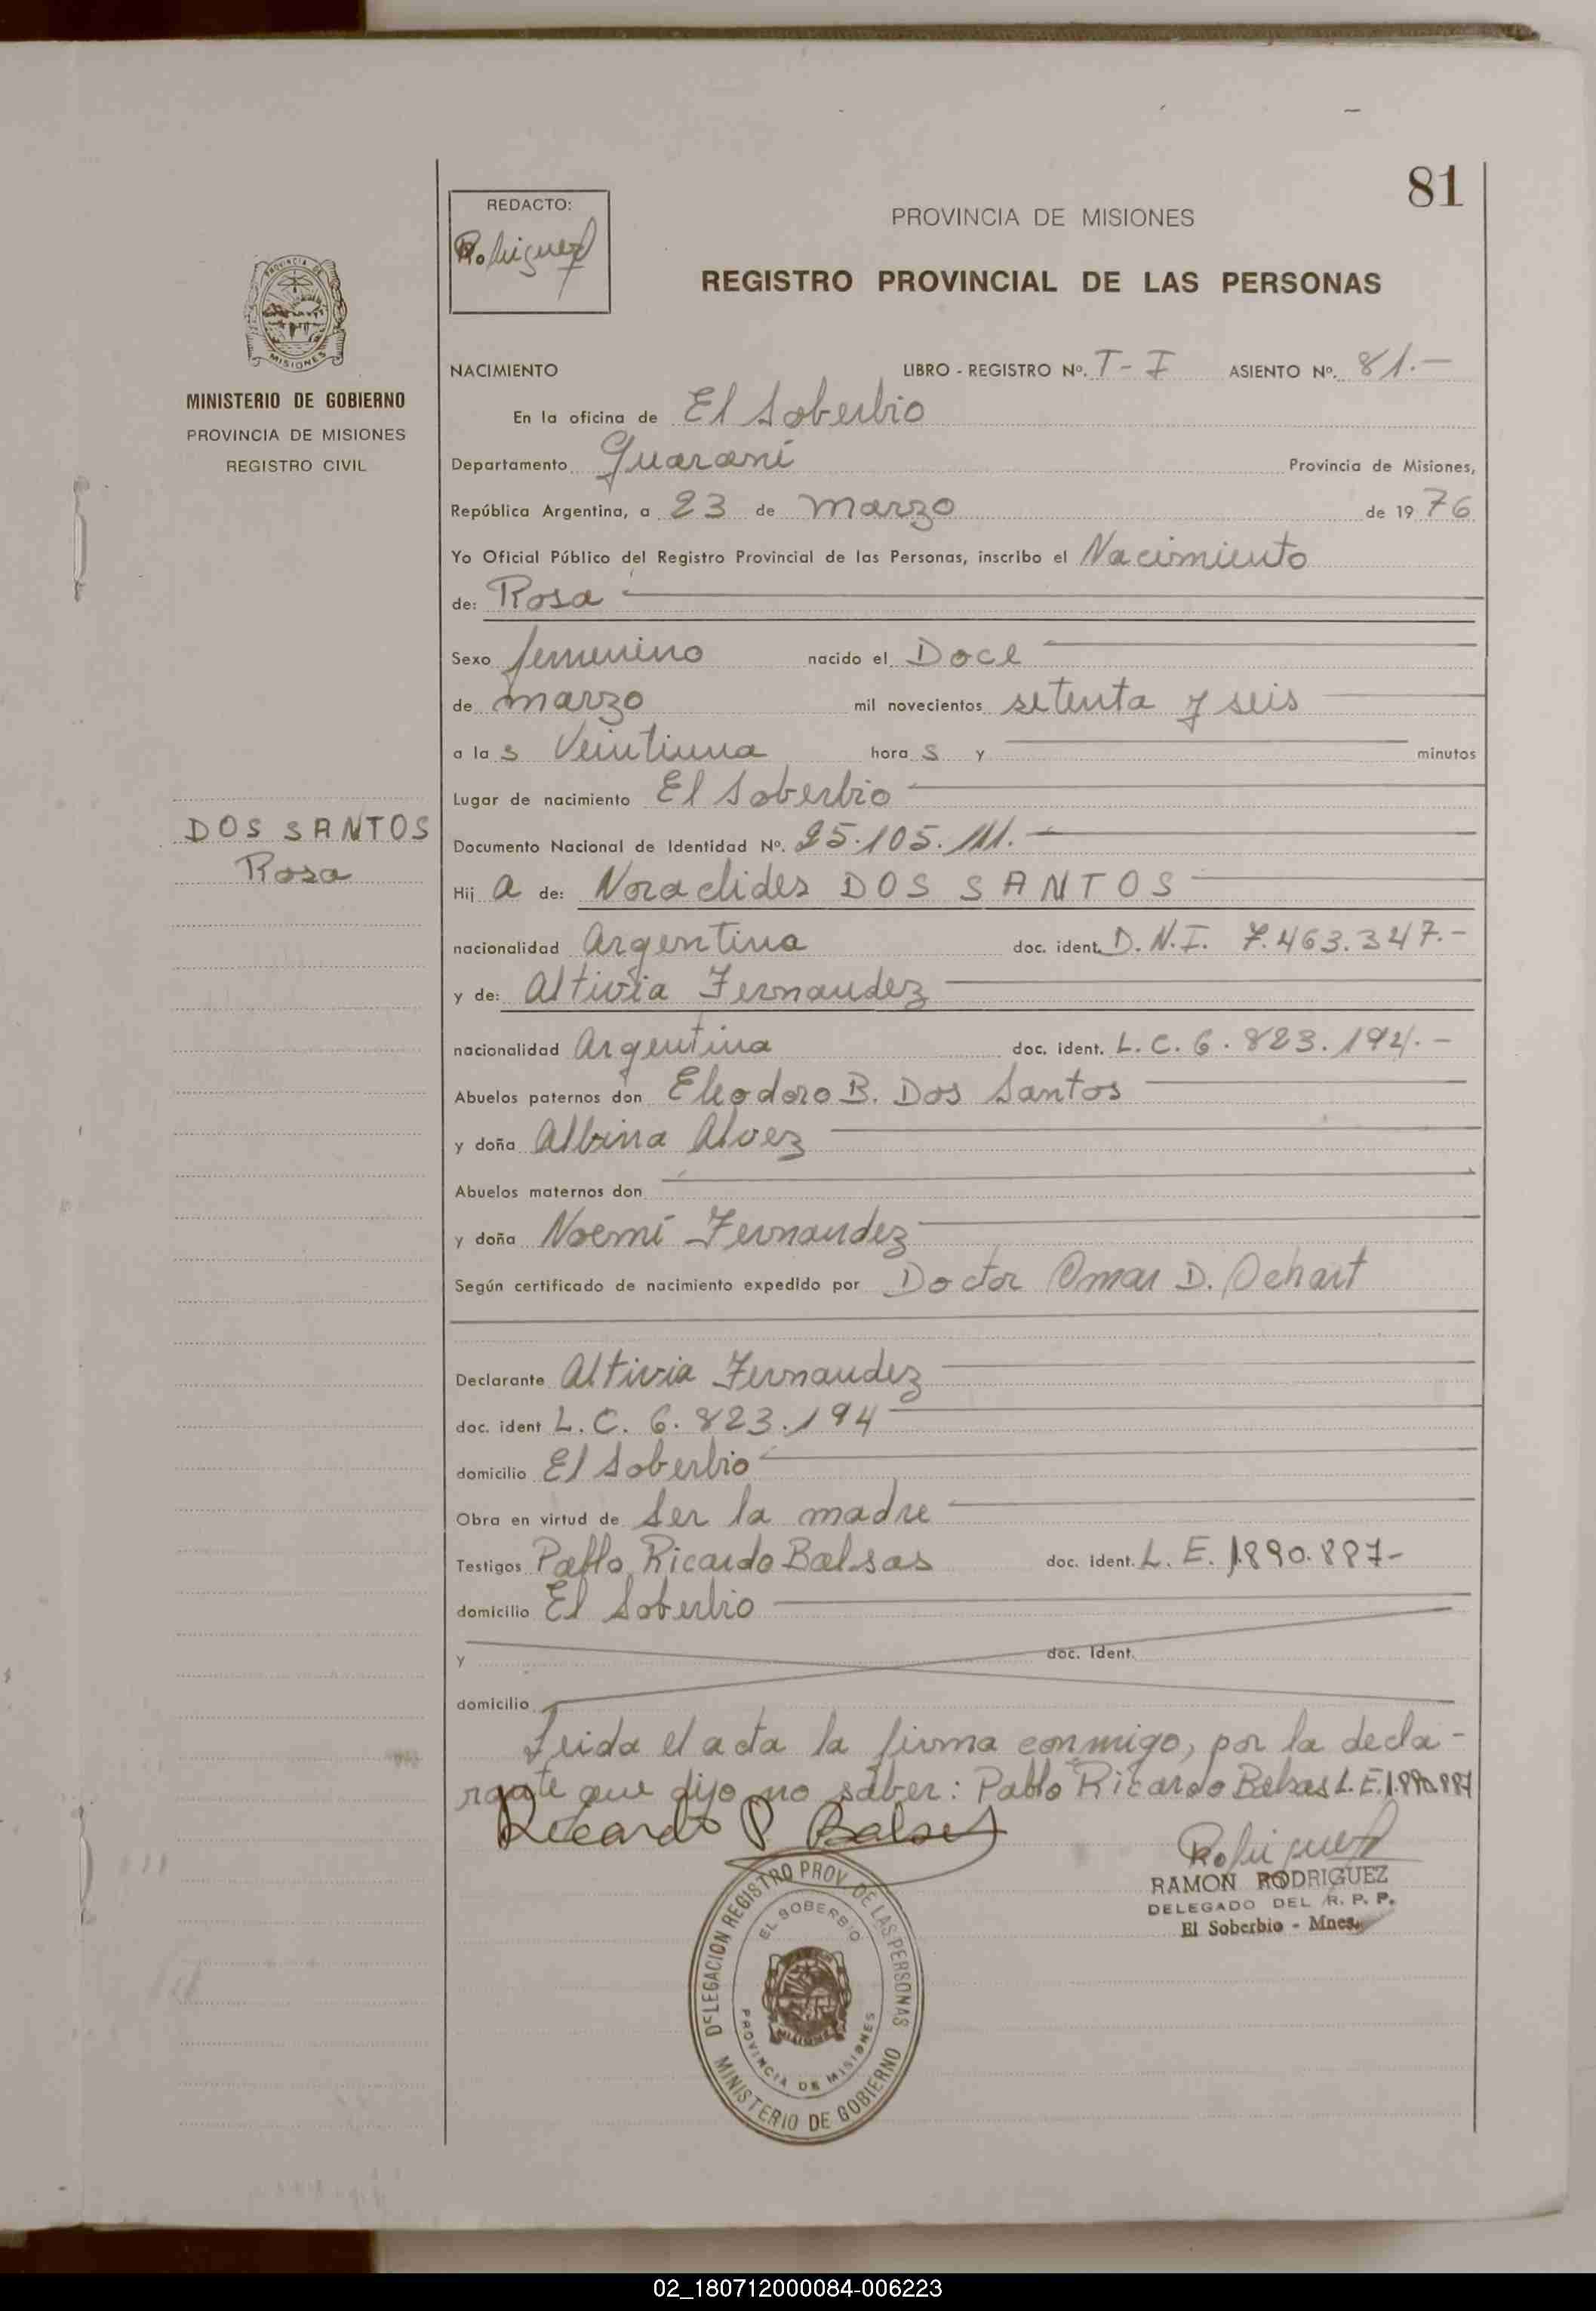 81
REDACTO:
Rodriguez
PROVINCIA DE MISIONES
REGISTRO PROVINCIAL DE LAS PERSONAS
PROVINCIA DE
MISIONES
MINISTERIO DE GOBIERNO
PROVINCIA DE MISIONES
REGISTRO CIVIL
NACIMIENTO LIBRO - REGISTRO Nº. T - I ASIENTO Nº. 81.-
En la oficina de El Soberbio
Departamento Guaraní Provincia de Misiones,
República Argentina, a 23 de marzo de 1976
Yo Oficial Público del Registro Provincial de las Personas, inscribo el Nacimiento
de: Rosa
Sexo femenino nacido el Doce
de marzo mil novecientos setenta y seis
a las Veintiuna horas y minutos
Lugar de nacimiento El Soberbio
DOS SANTOS
Rosa
Documento Nacional de Identidad Nº. 25.105.111.-
Hija de: Noraclides DOS SANTOS
nacionalidad Argentina doc. ident. D.N.I. 7.463.347.-
y de: Altivia Fernandez
nacionalidad Argentina doc. ident. L.C. 6.823.194.-
Abuelos paternos don Eleodoro B. Dos Santos
y doña Albina Alvez
Abuelos maternos don
y doña Noemí Fernandez
Según certificado de nacimiento expedido por Doctor Omar D. Ochart
Declarante Altivia Fernandez
doc. ident L.C. 6.823.194
domicilio El Soberbio
Obra en virtud de ser la madre
Testigos Pablo Ricardo Balsas doc. ident. L.E. 1.890.887-
domicilio El Soberbio
y doc. ident.
domicilio
Leida el acta la firma conmigo, por la decla-
rante que dijo no saber: Pablo Ricardo Balsas L.E. 1.890.887
Ricardo P Balsas
Rodriguez
RAMON RODRIGUEZ
DELEGADO DEL R. P. P.
El Soberbio - Mnes.
DELEGACION REGISTRO PROV. DE LAS PERSONAS
EL SOBERBIO
PROVINCIA DE MISIONES
MINISTERIO DE GOBIERNO
02_180712000084-006223